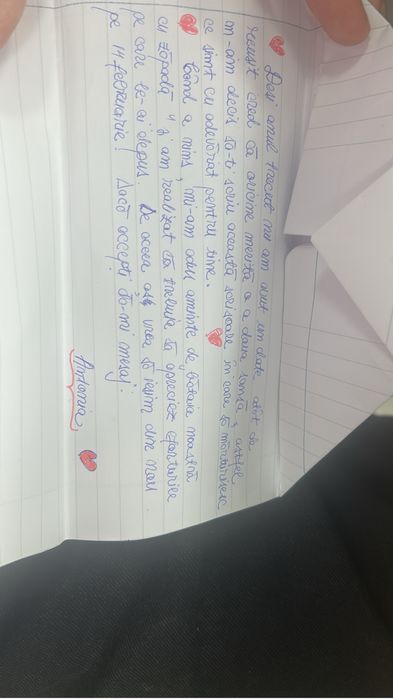 Deși anul trecut nu am avut un date atât de
reușit cred că oricine merită a a doua șansă, astfel
m-am decis să-ți scriu această scrisoare în care să mărturisesc
ce simt cu adevărat pentru tine.
Când a nins, mi-am adus aminte de bătaia noastră
cu zăpadă și am realizat că trebuie să apreciez eforturile
pe care le-ai depus. De aceea aș vrea să ieșim din nou
pe 14 februarie! Dacă accepți dă-mi mesaj!
Antonia